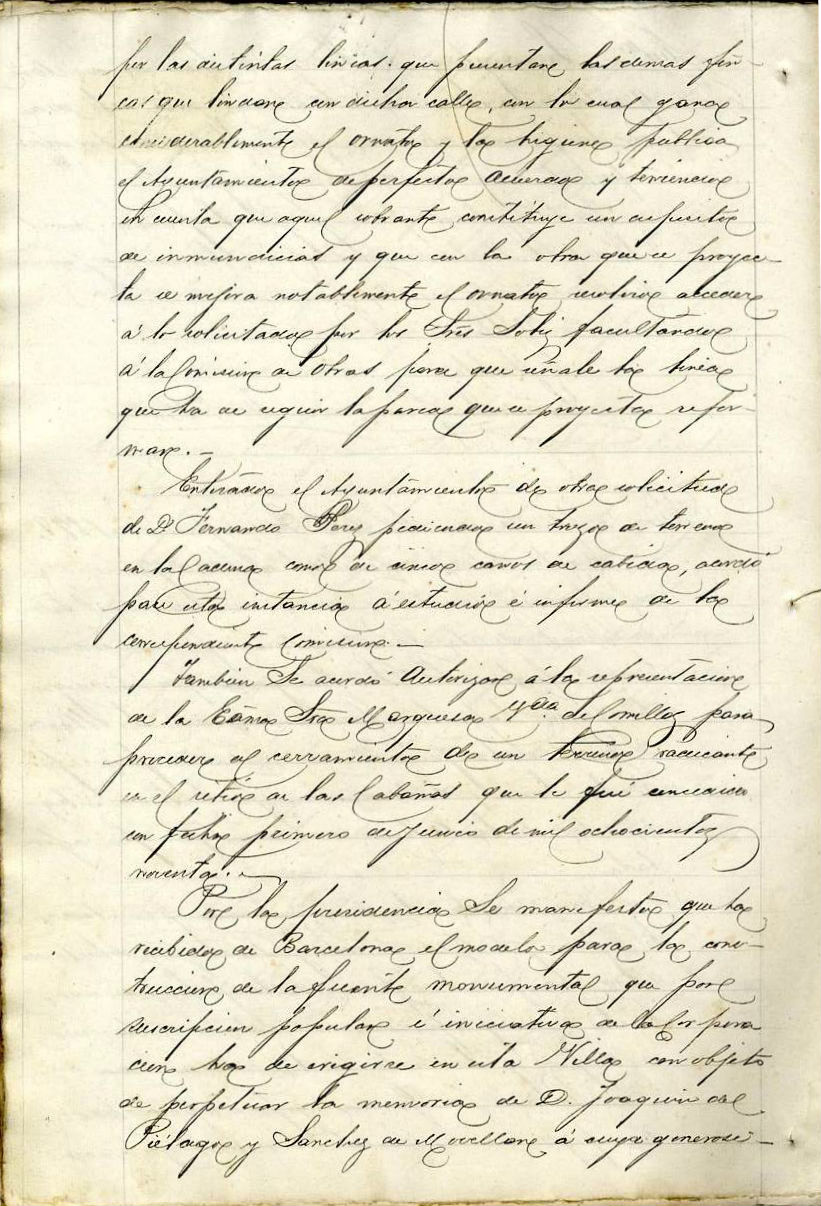 por las distintas lineas que presentan las demas fin-
cas que lindan con dicha calle, con lo cual gana
considerablemente el ornato y la higiene publica
el Ayuntamiento de perfecto acuerdo y teniendo
en cuenta que aquel sobrante constituye un deposito
de inmundicias y que con la obra que se proyec-
ta se mejora notablemente el ornato resolvio acceder
á lo solicitado por los Sres Solis facultando
á la Comision de Obras para que señale la linea
que ha de seguir la pared que se proyecta refor-
mar.-
Enterado el Ayuntamiento de otra solicitud
de Dn Fernando Perez pidiendo un trozo de terreno
en la como de cinco carros de cabida, acordó
pase esta instancia á estudio é informe de la
correspondiente Comision.-
Tambien se acordó autorizar á la representacion
de la Exma Sra Marquesa Vda. de Comillas para
proceder al cerramiento de un terreno radicante
en el sitio de las Cabañas que le fué concedido
con fecha primero de Junio de mil ochocientos
noventa.-
Por la presidencia se manifesto que ha
recibido de Barcelona el modelo para la cons-
truccion de la fuente monumental que por
suscripcion popular é iniciativa de la Corpora
cion ha de erigirse en esta Villa con objeto
de perpetuar la memoria de D. Joaquin del
Piélago y Sanchez de Movellan á cuya generosi-